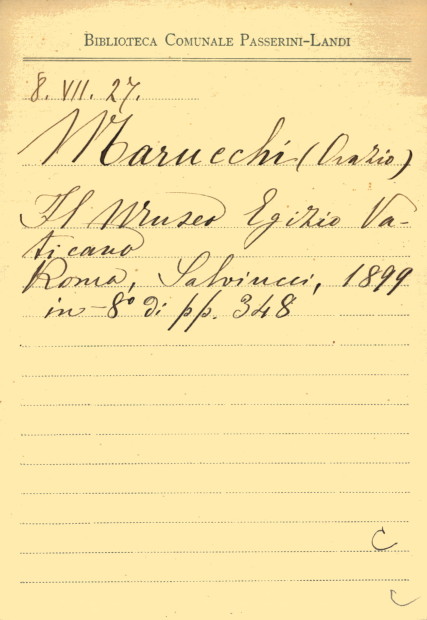 BIBLIOTECA COMUNALE PASSERINI-LANDI
8. VII. 27.
Marucchi (Orazio)
Il Museo Egizio Va-
ticano
Roma, Salviucci, 1899
in-8º di pp. 348
C
C